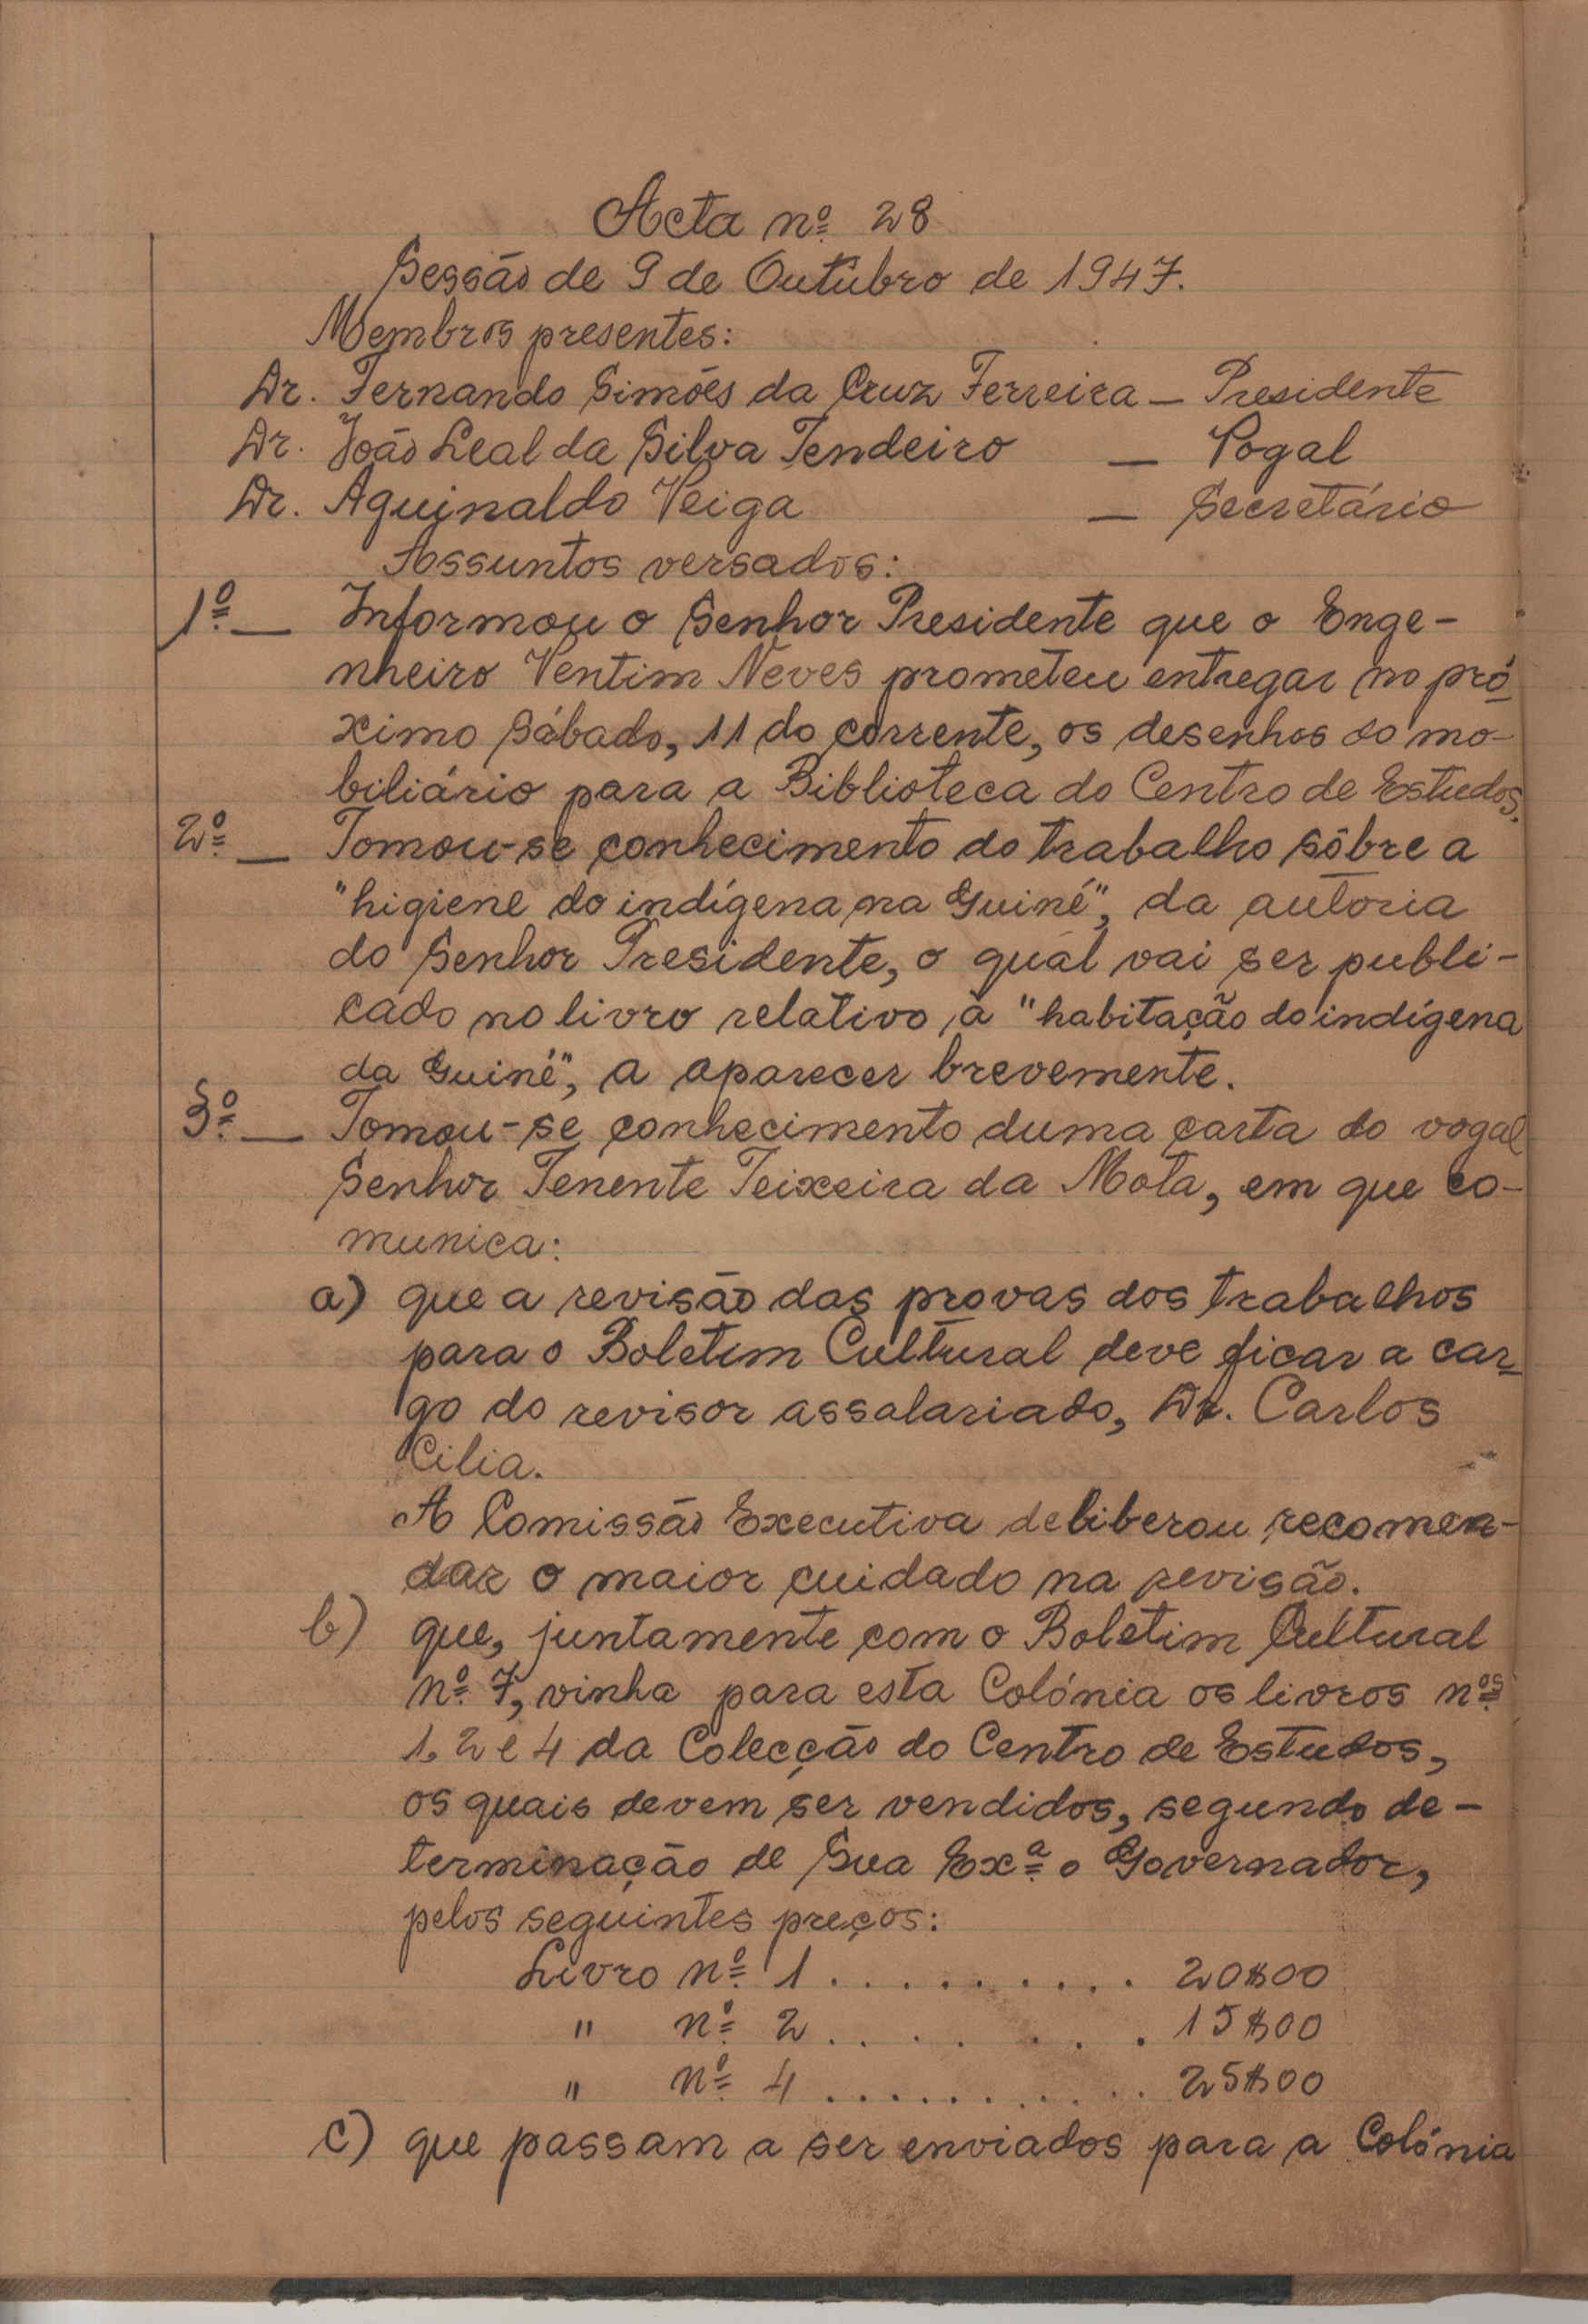 Acta nº 28
Sessão de 9 de Outubro de 1947.
Membros presentes:
Dr. Fernando Simões da Cruz Ferreira — Presidente
Dr. João Leal da Silva Tendeiro — Vogal
Dr. Aguinaldo Veiga — Secretário
Assuntos versados:
1º — Informou o Senhor Presidente que o Enge-
nheiro Ventim Neves prometeu entregar no pró-
ximo sábado, 11 do corrente, os desenhos do mo-
biliário para a Biblioteca do Centro de Estudos.
2º — Tomou-se conhecimento do trabalho sôbre a
"higiene do indígena na Guiné", da autoria
do Senhor Presidente, o qual vai ser publi-
cado no livro relativo à "habitação do indígena
da Guiné", a aparecer brevemente.
3º — Tomou-se conhecimento duma carta do vogal
Senhor Tenente Teixeira da Mota, em que co-
munica:
a) que a revisão das provas dos trabalhos
para o Boletim Cultural deve ficar a car-
go do revisor assalariado, Dr. Carlos
Cilia.
A Comissão Executiva deliberou recomen-
dar o maior cuidado na revisão.
b) que, juntamente com o Boletim Cultural
nº 7, vinha para esta Colónia os livros nºs
1, 2 e 4 da Colecção do Centro de Estudos,
os quais devem ser vendidos, segundo de-
terminação de Sua Exª o Governador,
pelos seguintes preços:
Livro nº 1 .......... 20$00
" nº 2 .......... 15$00
" nº 4 .......... 25$00
c) que passam a ser enviados para a Colónia